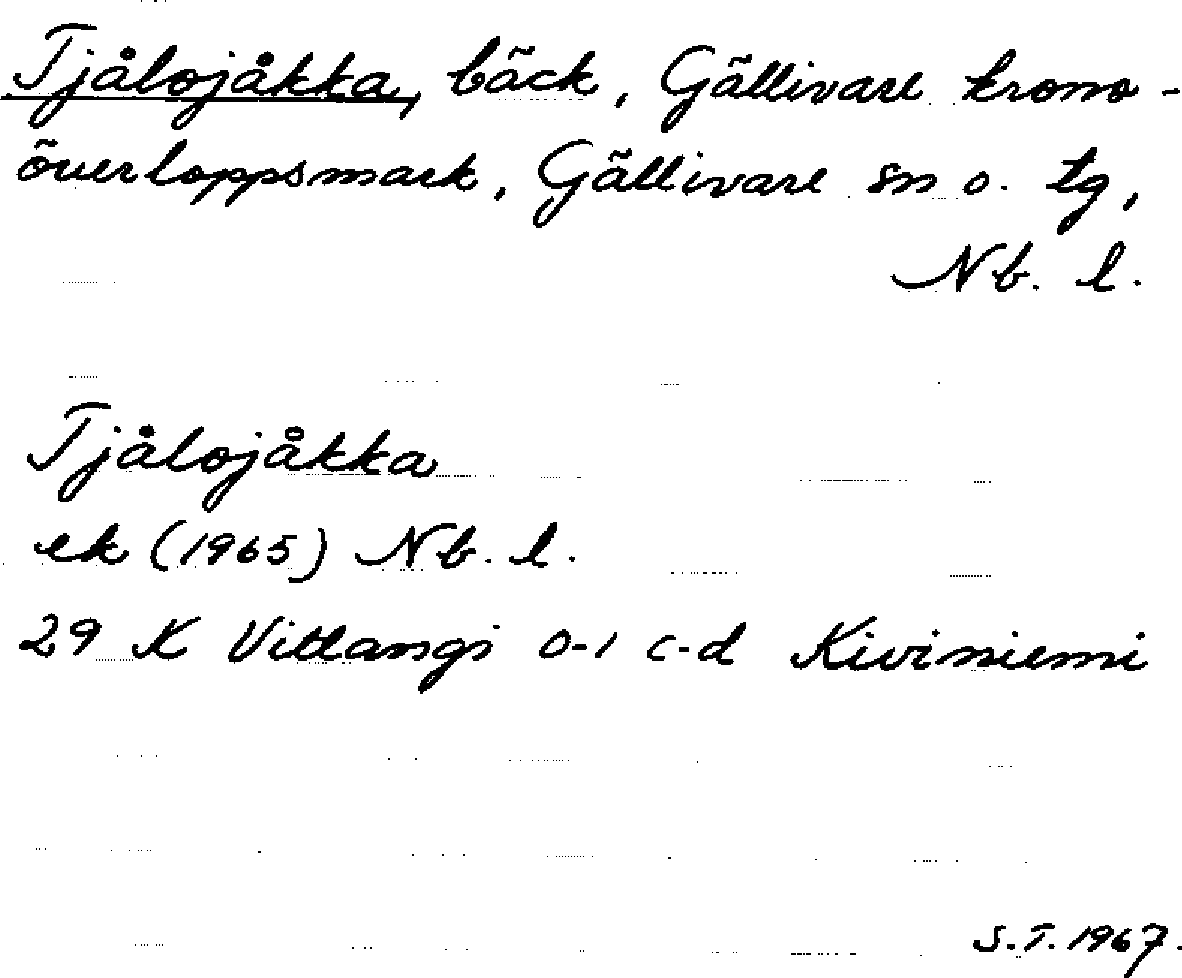 Tjålojåkka, bäck, Gällivare krono-
överloppsmark, Gällivare sn o. tg,
Nb. l.
Tjålojåkka
ek (1965) Nb. l.
29 K Vittangi 0-1 c-d Kiviniemi
S.T. 1967.